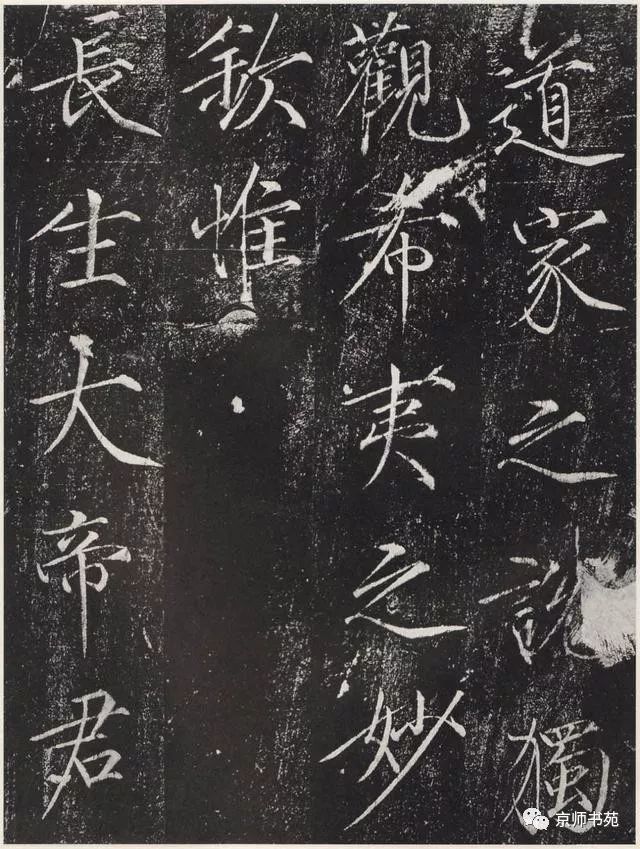 道家之說獨
觀希夷之妙
欽惟
長生大帝君
京师书苑